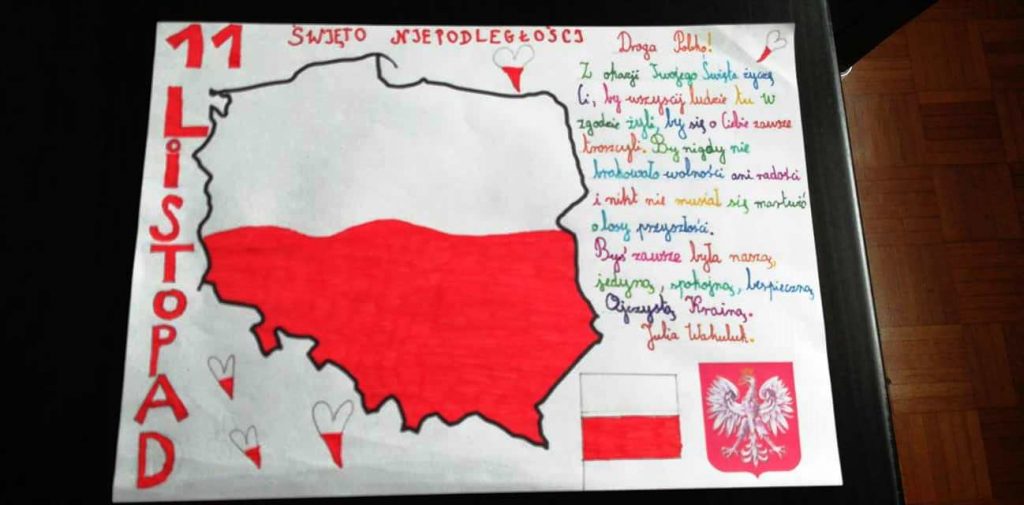 11
LiSToPAD
ŚWIĘTO NIEPODLEGŁOŚCI
Droga Polsko!
Z okazji Twojego Święta życzę
Ci, by wszyscy ludzie tu w
zgodzie żyli, by się o Ciebie zawsze
troszczyli. By nigdy nie
brakowało wolności ani radości
i nikt nie musiał się martwić
o losy przyszłości.
Byś zawsze była naszą,
jedyną, spokojną, bezpieczną
Ojczystą Krainą.
Julia Wakuluk.